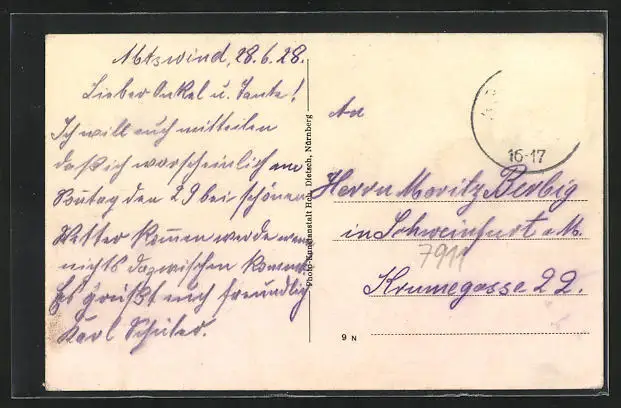 Abtswind, 28.6.28.
Lieber Onkel u. Tante!
Ich will euch mitteilen
daß ich warscheinlich am
Sontag den 29 bei schönen
Wetter kommen werde wenn
nichts dazwischen kommt.
Es grüßt euch freundlich
Karl Schüler.
Photo-Kunstanstalt Hch. Dietsch, Nürnberg
An
16-17
Herrn Moritz Berbig
in Schweinfurt a. M.
7911
Krumegasse 22.
9 N